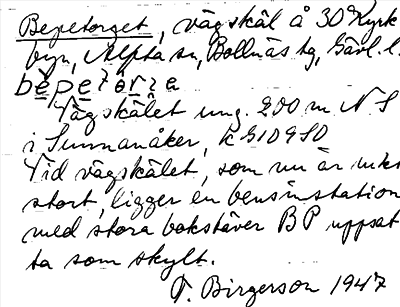 Bepetorget, vägskäl å 30 Kyrk
byn, Alfta sn, Bollnäs tg, Gävl. l.
bèpetårjə
Vägskälet ung. 200 m N S
i Sunnanåker,
Vid vägskälet, som nu är
stort, ligger en bensinstation
med stora bokstäver BP uppsat
ta som skylt.
T. Birgerson 1947